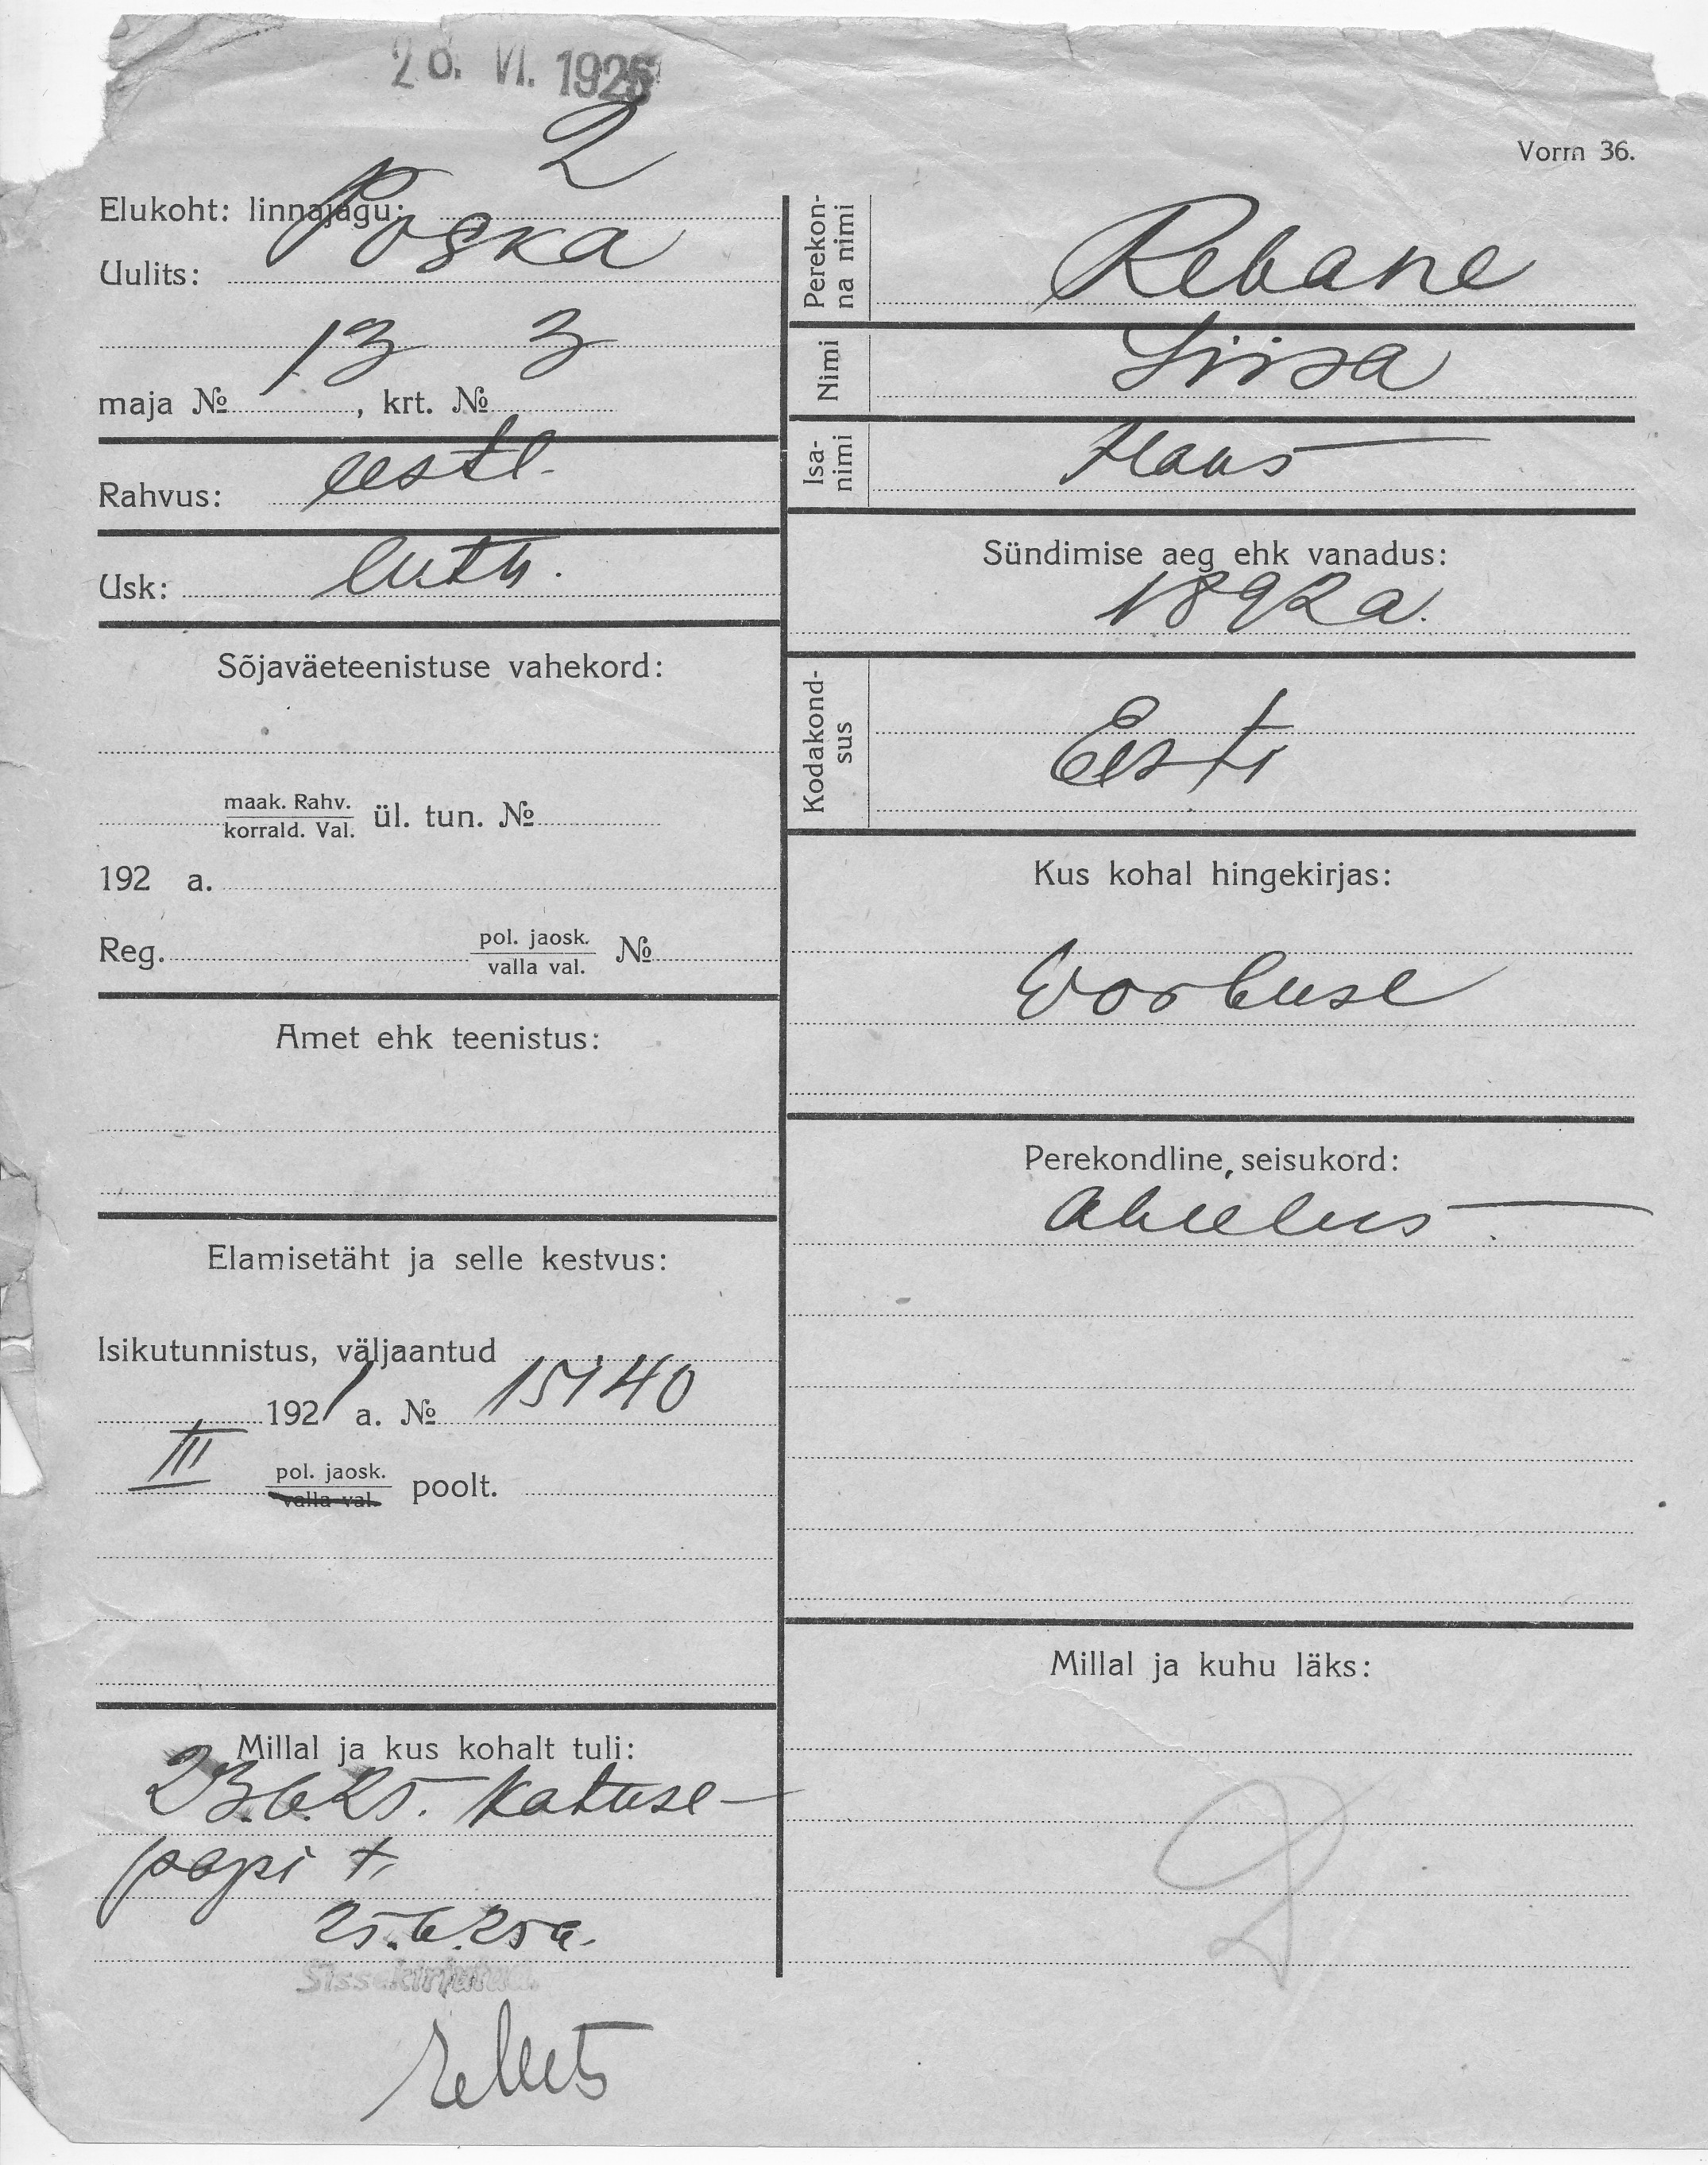 26. VI. 1925
Vorm 36.
2
Elukoht: linnajagu:
Poska
Uulits:
13 3
maja № , krt. №
eestl.
Rahvus:
luth.
Usk:
Sõjaväeteenistuse vahekord:
maak. Rahv.
korrald. Val. ül. tun. №
192 a.
Reg. pol. jaosk. №
valla val.
Amet ehk teenistus:
Elamisetäht ja selle kestvus:
Isikutunnistus, väljaantud
1921 a. № 15140
III pol. jaosk. poolt.
valla val.
Millal ja kus kohalt tuli:
23.6.25. Katuse-
papi t.
25.6.25 a.
Sissekirjutud.
Perekon-
na nimi
Rebane
Nimi
Liisa
Isa-
nimi
Hans
Sündimise aeg ehk vanadus:
1892 a.
Kodakond-
sus
Eesti
Kus kohal hingekirjas:
Vorbuse
Perekondline seisukord:
abielus
Millal ja kuhu läks: